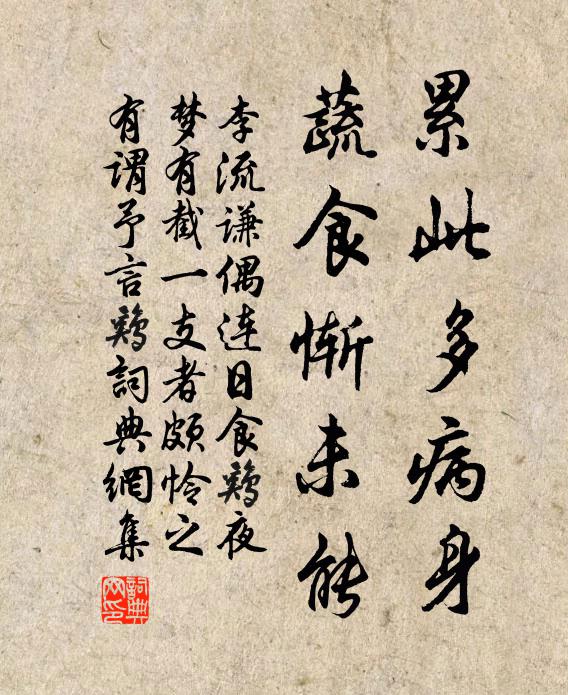 累此多病身
蔬食慚未能
李流谦偶连日食鶏夜
梦有截一支者颇怜之
有谓予言鶏詞典網集
詞典